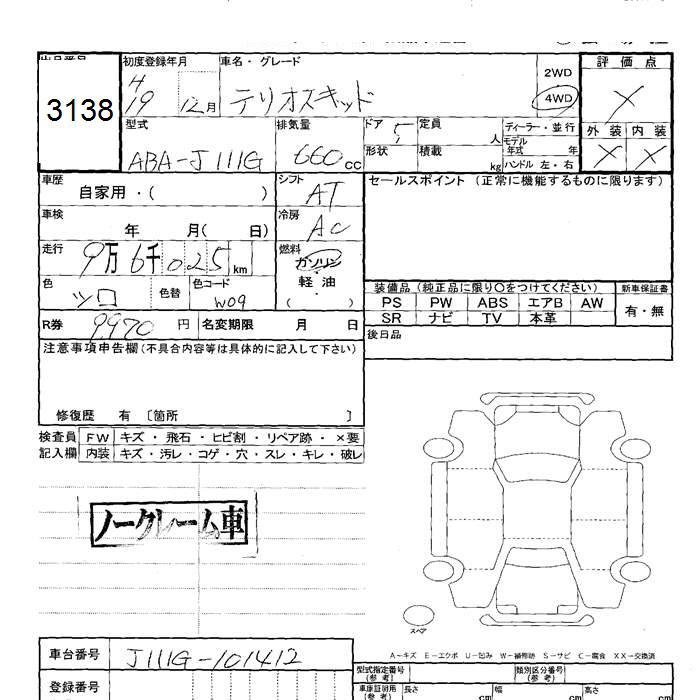 初度登録年月 車名・グレード 評価点
3138 H19 12月 テリオスキッド 2WD 4WD ×
型式 排気量 ドア 5 定員 人 ディーラー・並行 外装 内装
モデル年式 年
ABA-J111G 660cc 形状 積載 kg ハンドル 左・右 × ×
車歴 自家用・( ) シフト AT セールスポイント (正常に機能するものに限ります)
車検 年 月( 日) 冷房 AC
走行 9万6千025km 燃料 ガソリン
軽・油
( )
色 シロ 色替 色コード W09
装備品 (純正品に限り○をつけてください) 新車保証書
PS PW ABS エアB AW 有・無
SR ナビ TV 本革
R券 9,970 円 名変期限 月 日 後日品
注意事項申告欄(不具合内容等は具体的に記入して下さい)
修復歴 有 〔箇所 〕
検査員 FW キズ・飛石・ヒビ割・リペア跡・×要
記入欄 内装 キズ・汚レ・コゲ・穴・スレ・キレ・破レ
ノークレーム車
スペア
A-キズ E-エクボ U-凹み W-補修跡 S-サビ C-腐食 XX-交換済
車台番号 J111G-101412
型式指定番号(参考) 類別区分番号(参考)
登録番号 車庫証明用(参考) 長さ cm 幅 cm 高さ cm